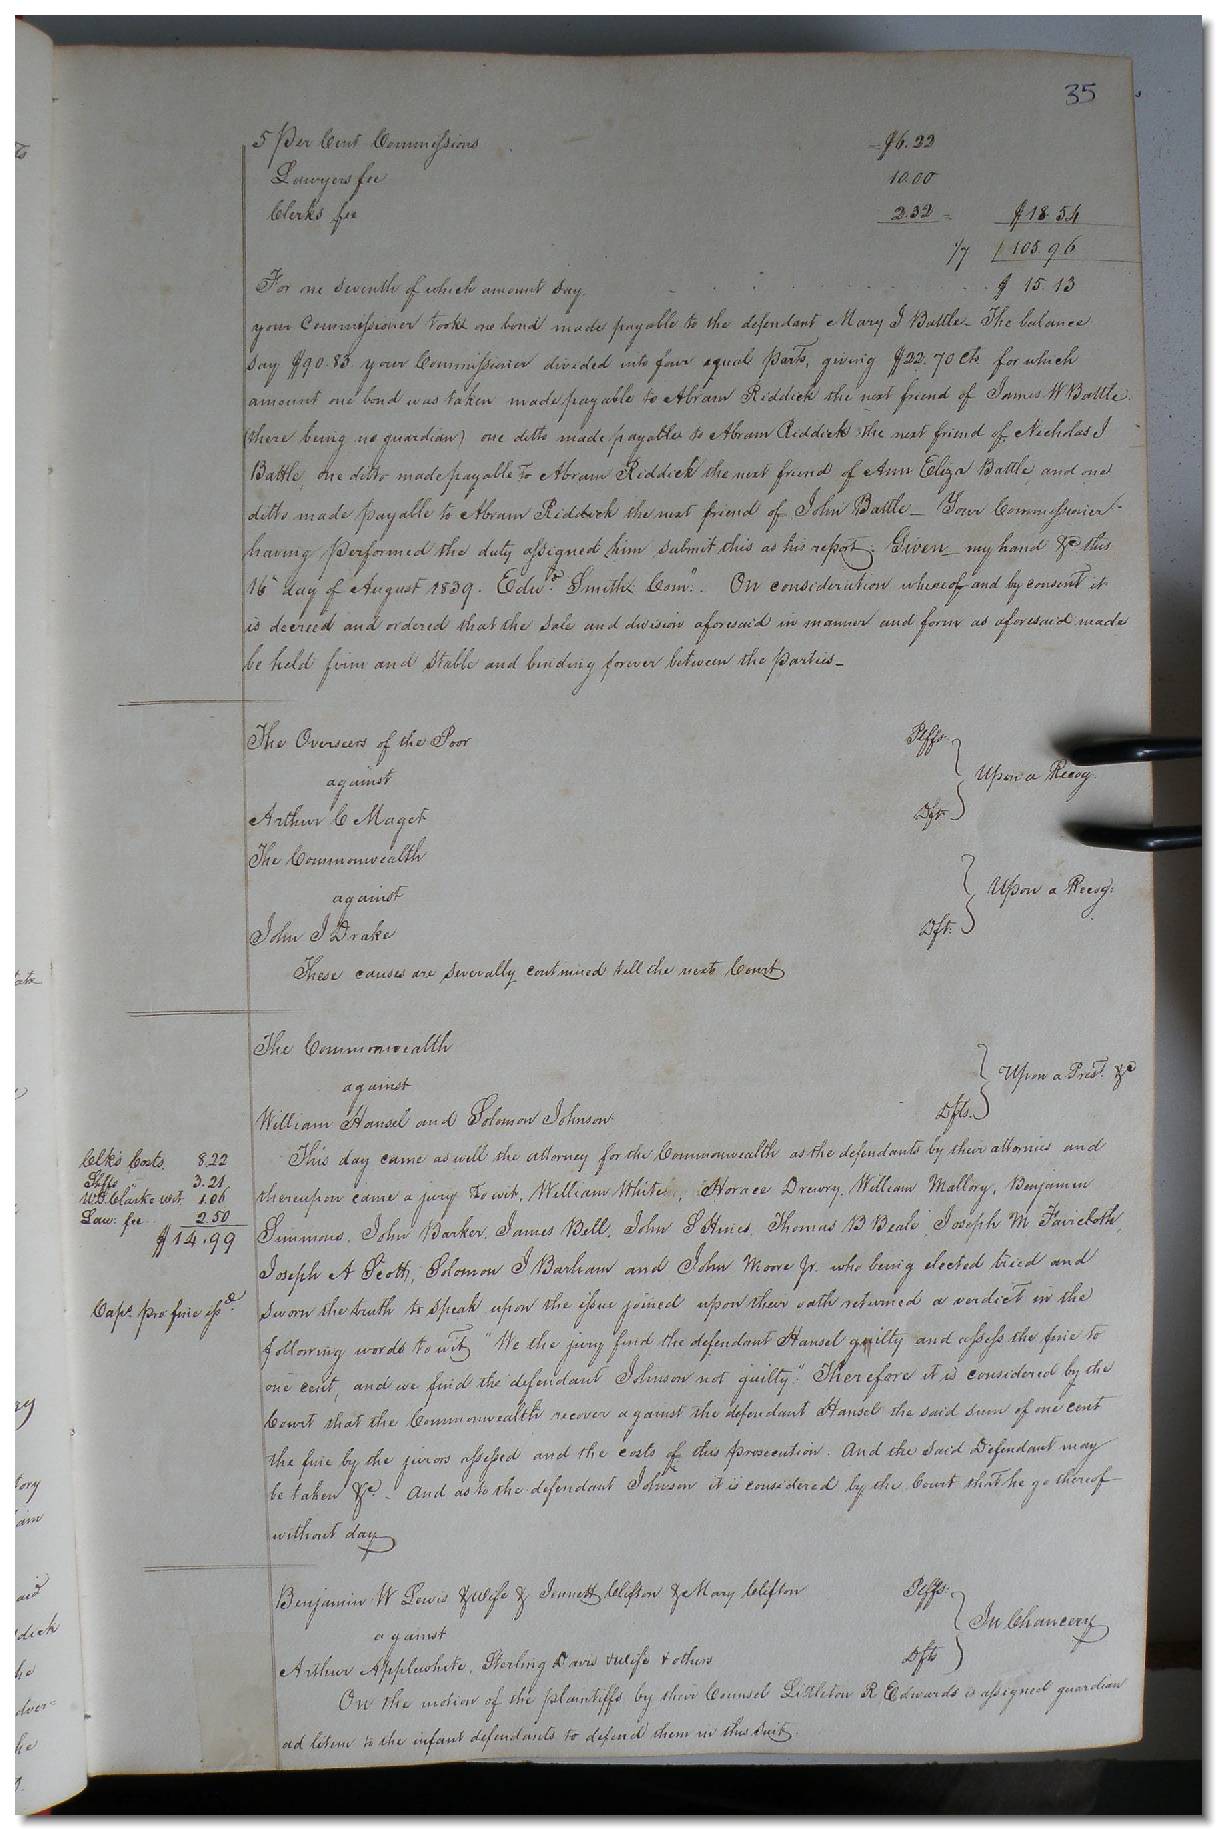 35
5 Per Cent Commissions $6.22
Lawyers fee 10.00
Clerks fee 2.32 = $18.54
1/7 105.96
For one seventh of which amount say $15.13
your Commissioner took one bond made payable to the defendant Mary J Battle_ The balance
say $90.83 your Commissioner divided into four equal parts, giving $22.70 cts for which
amount one bond was taken made payable to Abram Riddick the next friend of James W Battle
(there being no guardian) one ditto made payable to Abram Riddick the next friend of Nicholas J
Battle, one ditto made payable to Abram Riddick the next friend of Ann Eliza Battle and one
ditto made payable to Abram Riddick the next friend of John Battle_ Your Commissioner
having performed the duty assigned him submit this as his report. Given my hand &c this
16 day of August 1839. Edwd. Smith Comr. On consideration whereof and by consent it
is decreed and ordered that the sale and division aforesaid in manner and form as aforesaid made
be held firm and stable and binding forever between the parties_
The Overseers of the Poor Plffs.
against Upon a Recog.
Arthur C Maget Dft.
The Commonwealth
against Upon a Recog.
John J Drake Dft.
These causes are severally continued till the next Court
The Commonwealth
against Upon a Prest. &c
William Hansel and Solomon Johnson Dfts.
Clk's Costs. 8.22
3.21
1.06
Law. fee 2.50
$14.99
This day came as well the attorney for the Commonwealth as the defendants by their attornies and
thereupon came a jury to wit, William White, Horace Drewry, William Mallory, Benjamin
Simmons, John Barker, James Bell, John S Hines, Thomas B Beale, Joseph M Faircloth,
Joseph A Scott, Solomon J Barham and John Moore Jr. who being elected tried and
Caps. pro fine issd.
sworn the truth to speak upon the issue joined upon their oath returned a verdict in the
following words to wit "We the jury find the defendant Hansel guilty and assess the fine to
one cent, and we find the defendant Johnson not guilty". Therefore it is considered by the
Court that the Commonwealth recover against the defendant Hansel the said sum of one cent
the fine by the jurors assessed and the costs of this prosecution. And the said Defendant may
be taken &c. And as to the defendant Johnson it is considered by the Court that he go thereof
without day
Benjamin W Lewis & wife & Jennett Clifton & Mary Clifton Plffs.
against In Chancery
Arthur Applewhite, Sterling Davis & wife & others Dfts
On the motion of the plaintiffs by their Counsel Littleton R Edwards is assigned guardian
ad litem to the infant defendants to defend them in this suit.